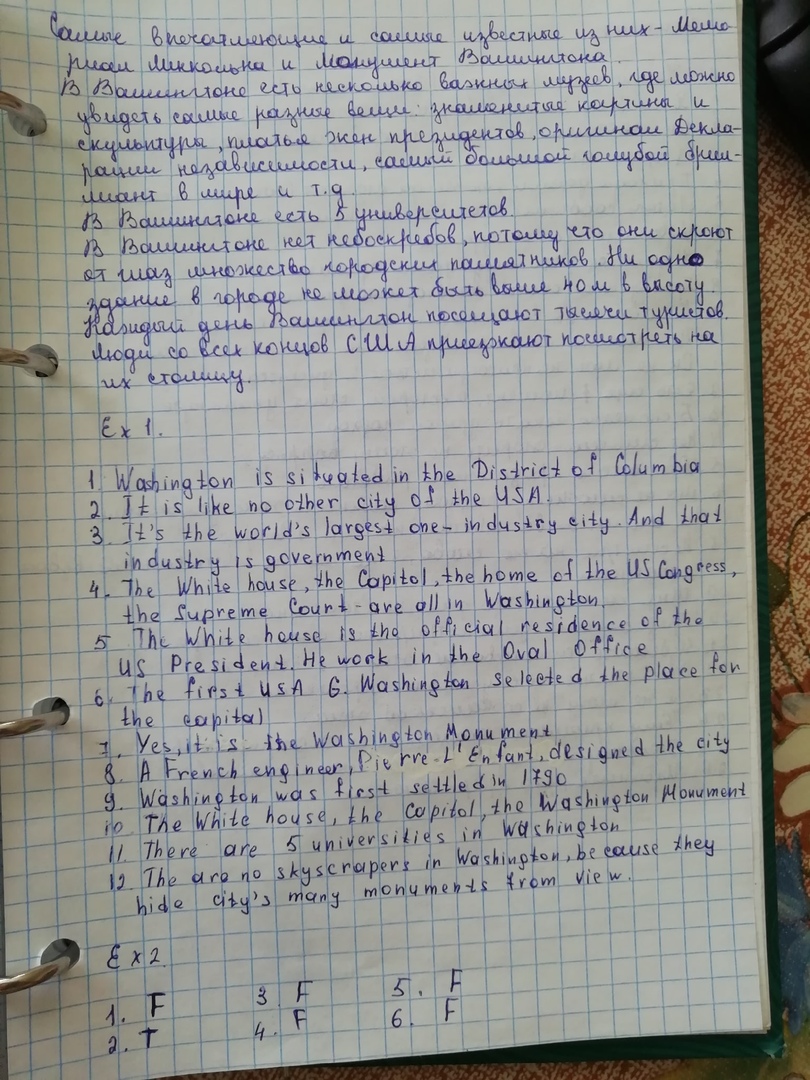 Самые впечатляющие и самые известные из них - Мемо
риал Линкольна и Монумент Вашингтона.
В Вашингтоне есть несколько важных музеев, где можно
увидеть самые разные вещи: знаменитые картины и
скульптуры, платья жен президентов, оригинал Декла-
рации независимости, самый большой голубой брил-
лиант в мире и т.д.
В Вашингтоне есть 5 университетов.
В Вашингтоне нет небоскребов, потому что они скроют
от глаз множество городских памятников. Ни одно
здание в городе не может быть выше 40 м в высоту.
Каждый день Вашингтон посещают тысячи туристов.
Люди со всех концов США приезжают посмотреть на
их столицу.
Ex 1.
1. Washington is situated in the District of Columbia
2. It is like no other city of the USA.
3. It's the world's largest one-industry city. And that
industry is government
4. The White house, the Capitol, the home of the US Congress,
the Supreme Court - are all in Washington.
5. The White house is the official residence of the
US President. He work in the Oval Office
6. The first USA G. Washington selected the place for
the capital
7. Yes, it is the Washington Monument
8. A French engineer, Pierre L'Enfant, designed the city
9. Washington was first settled in 1790
10. The White house, the Capitol, the Washington Monument
11. There are 5 universities in Washington
12. The are no skyscrapers in Washington, because they
hide city's many monuments from view.
Ex 2.
1. F 3. F 5. F
2. T 4. F 6. F